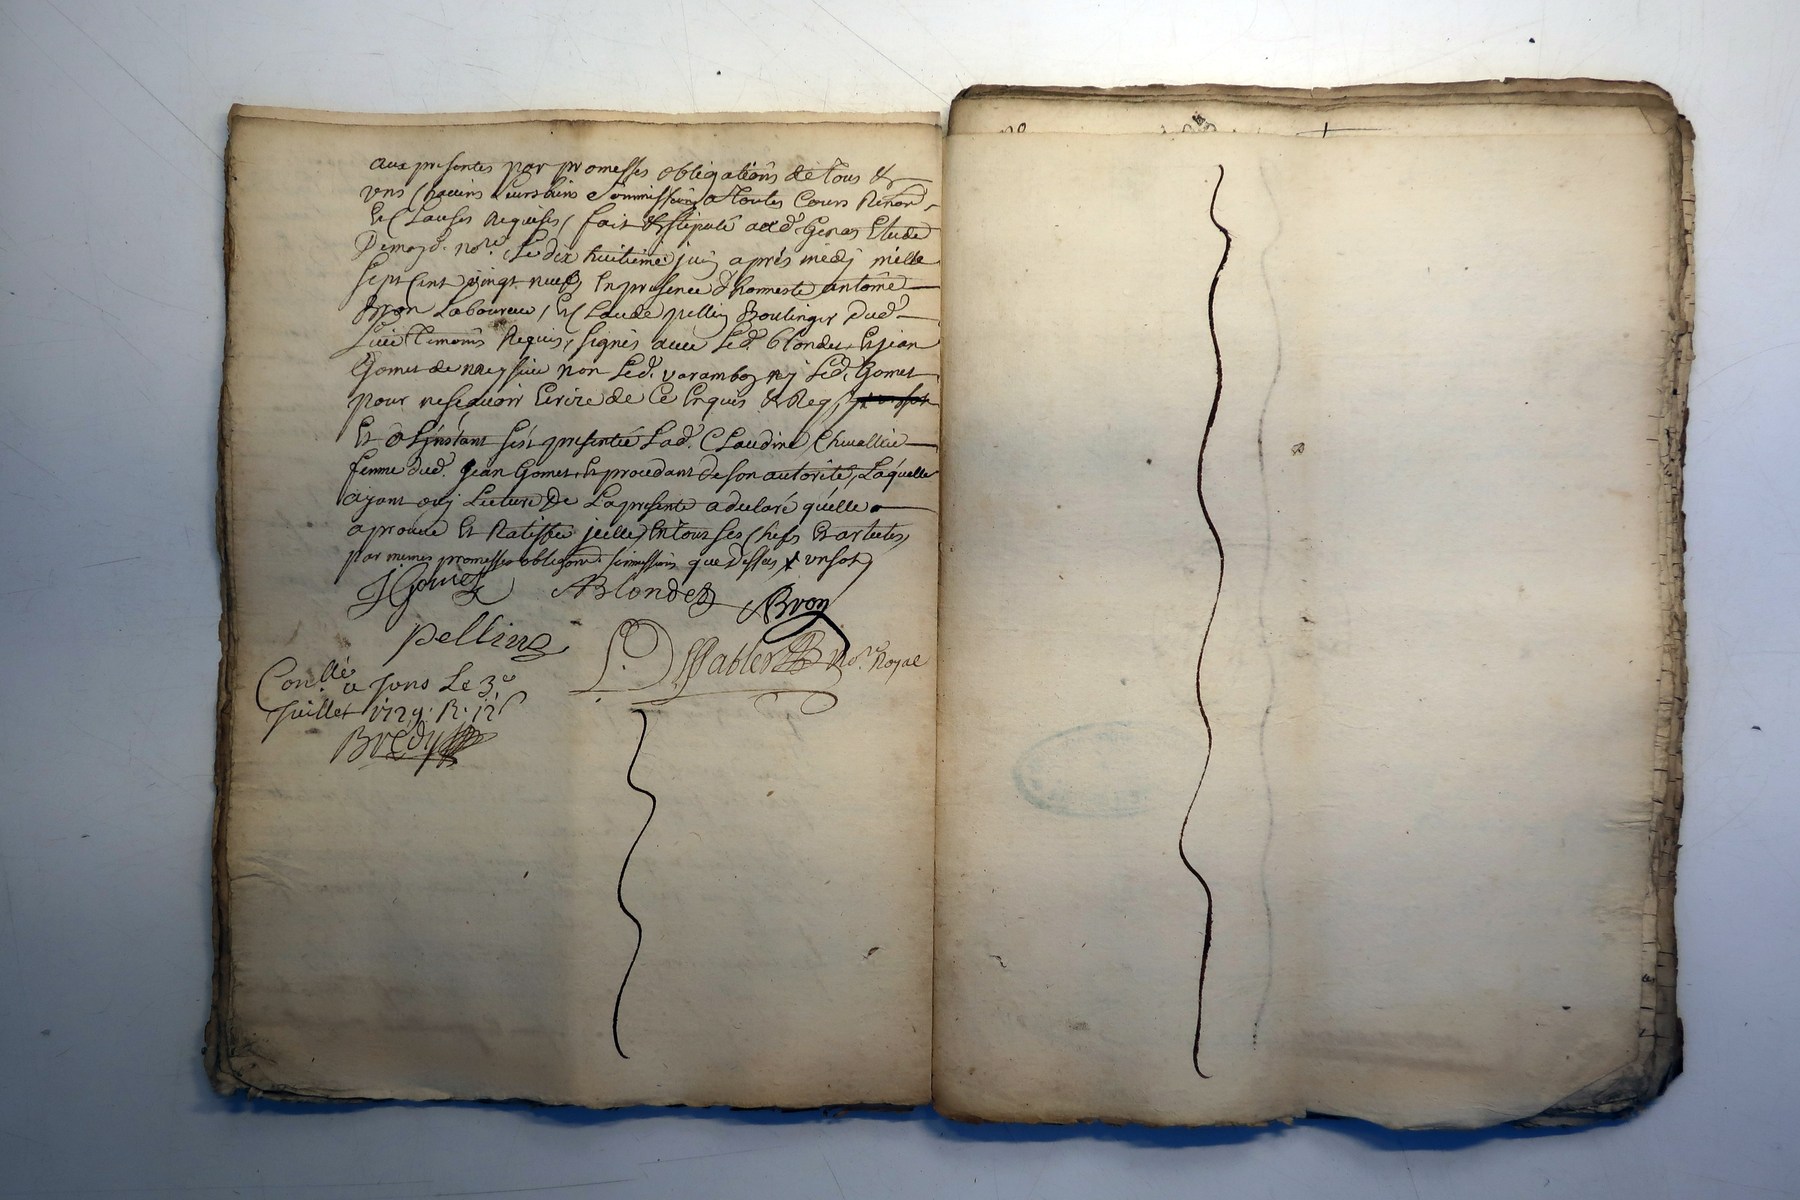 aux presentes par promesses obligations de tous &
uns chacuns leurs biens soumissions a toutes Cours Renon.
Et Clauses Requises, fait & stipulé aud. Genas Etude
De moyd. no.re Le dix huitieme juin après midy mille
sept Cent vingt neuf, En presence d'honneste antoine
Bron Laboureur, Et Claude pellin Boulinger dud.
Lieu Temoins Requis, signés avec Led. blondet, Et jean
Gomet de non Led. varambon ny Led. Gomet
pour ne sçavoir Ecrire de Ce Enquis & Req.
Et a L'instant s'est presentée Lad. Claudine Chevallier
femme dud. jean Gomet, Et procedant de son autorité, Laquelle
ayant ouy Lecture De La presente a declaré qu'elle
aprouve Et Ratiffie jcelle En tout ses Chefs Et articles,
par mêmes promesses obligaons. soumissions que Dessus
J Gomet Blondet Bron
pellin no.re Royal
Con.llé a Jons Le 3e
Juillet 1729. R. 12 s